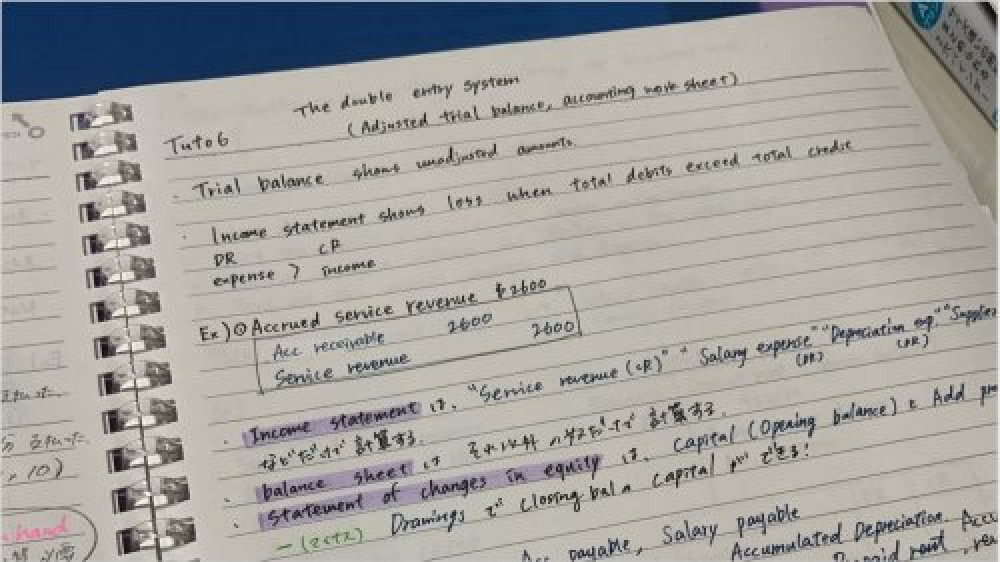 The double entry system
Tuto 6 (Adjusted trial balance, accounting work sheet)
· Trial balance shows unadjusted amounts.
· Income statement shows loss when total debits exceed total credit
DR CR
expense > income
Ex) ① Accrued service revenue $2600
Acc receivable 2600
Service revenue 2600
· Income statement は、"Service revenue (CR)" "Salary expense" "Depreciation exp." "Supplies
(DR) (DR)
などだけで計算する.
· balance sheet は それ以外のやつだけで計算する.
· Statement of changes in equity は、Capital (Opening balance) と Add
Drawings で Closing bal a capital ができる!
Acc payable, Salary payable
Accumulated Depreciation.
× 10)
hand